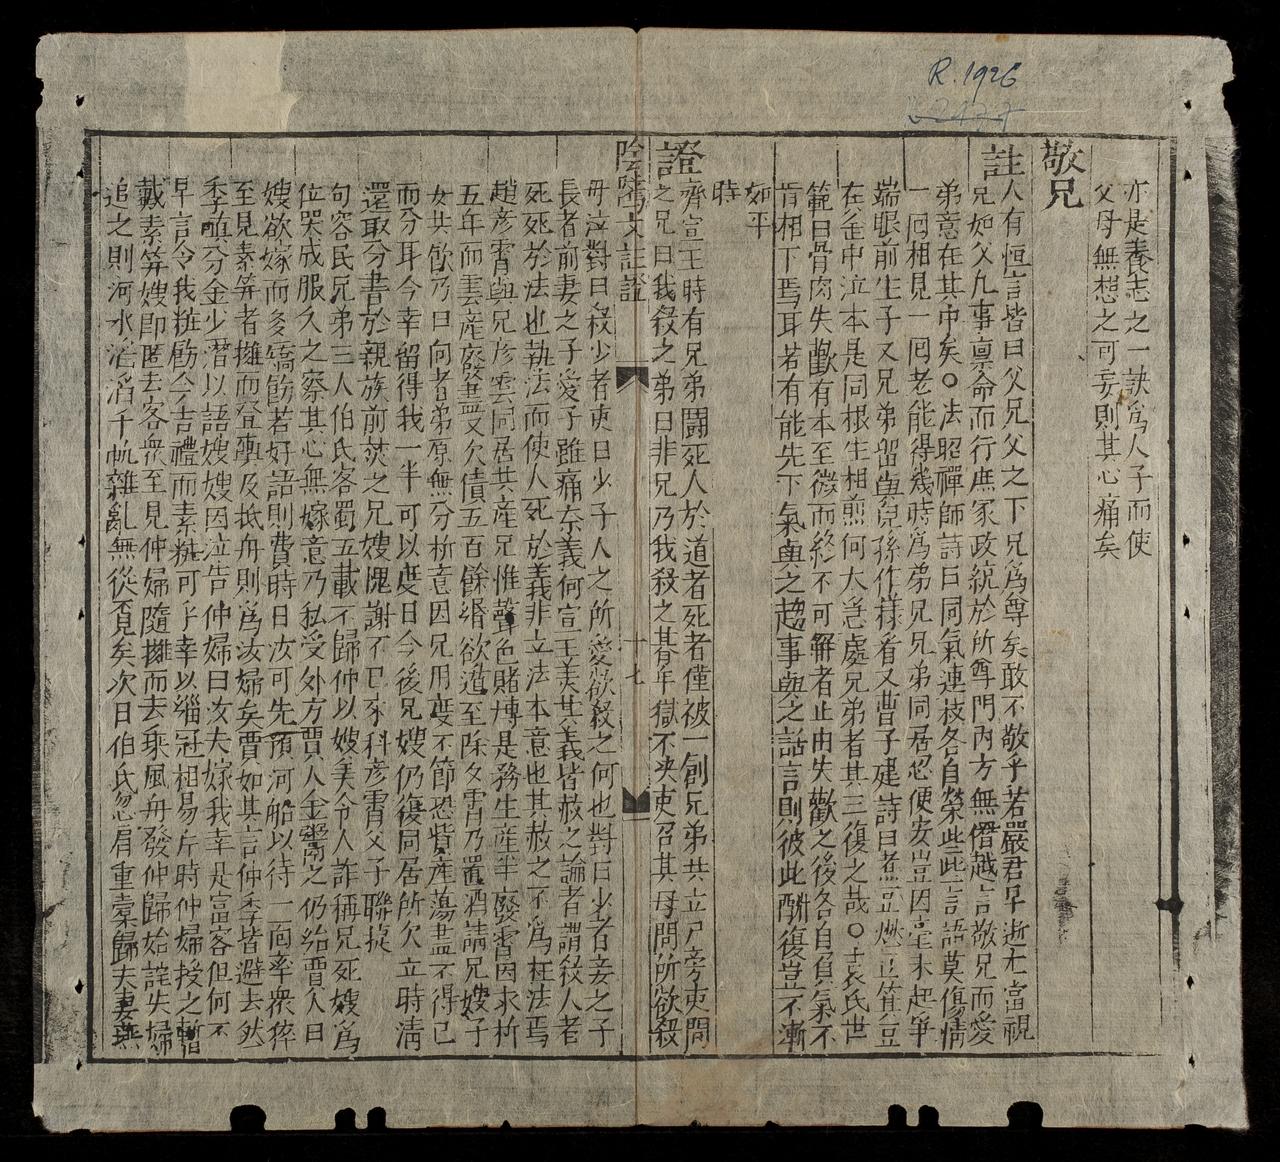 R.1926
亦是養志之一訣爲人子而使
父母無憩之可妄則其心痛矣
敬兄
註
人有恒言皆曰父兄父之下兄爲尊矣敢不敬乎若嚴君早逝尤當視
兄如父凡事禀命而行庶家政統於所尊門內方無僭越言敬兄而愛
弟意在其中矣○法昭禪師詩曰同氣連枝各自榮些些言語莫傷情
一囘相見一囘老能得幾時爲弟兄兄弟同居忍便安豈因毫末起爭
端眼前生子又兄弟留與兒孫作樣看又曹子建詩曰煮豆燃豆箕豆
在釜中泣本是同根生相煎何太急處兄弟者其三復之哉○袁氏世
範曰骨肉失歡有本至微而終不可解者止由失歡之後各自負氣不
肯相下焉耳若有能先下氣與之趨事與之話言則彼此酬復豈不漸
如平
時
證
齊宣王時有兄弟鬪死人於道者死者僅被一創兄弟共立尸旁吏問
之兄曰我殺之弟曰非兄乃我殺之朞年獄不決吏召其母問所欲殺
陰騭文註證
十七
母泣對曰殺少者吏曰少子人之所愛欲殺之何也對曰少者妾之子
長者前妻之子愛子雖痛奈義何宣王美其義皆赦之論者謂殺人者
死死於法也執法而使人死於義非立法本意也其赦之不爲枉法焉
趙彥霄與兄彥雲同居共產兄惟聲色賭博是務生產半廢霄因求析
五年而雲產廢盡又欠債五百餘緡欲遁至除夕霄乃置酒請兄嫂子
女共飮乃曰向者弟原無分析意因兄用度不節恐貲産蕩盡不得已
而分耳今幸留得我一半可以度日今後兄嫂仍復同居所欠立時淸
還取分書於親族前焚之兄嫂愧謝不已來科彥霄父子聯捷
句容民兄弟三人伯氏客蜀五載不歸仲以嫂美令人詐稱兄死嫂爲
位哭成服久之察其心無嫁意乃私受外方賈人金鬻之仍紿賈人曰
嫂欲嫁而多矯飾若好語則費時日汝可先預河船以待一面率衆猝
至見素笄者擁而登輿及抵舟則爲汝婦矣賈如其言仲季皆避去然
季嗔分金少潛以語嫂嫂因泣告仲婦曰汝夫嫁我幸是富客但何不
早言令我粧飾今吉禮而素粧可乎幸以緇冠相易片時仲婦授之暫
戴素笄嫂卽匿去客衆至見仲婦隨擁而去乘風舟發仲歸始詫失婦
追之則河水滔滔千帆雜亂無從覓矣次日伯氏忽肩重槖歸夫妻無